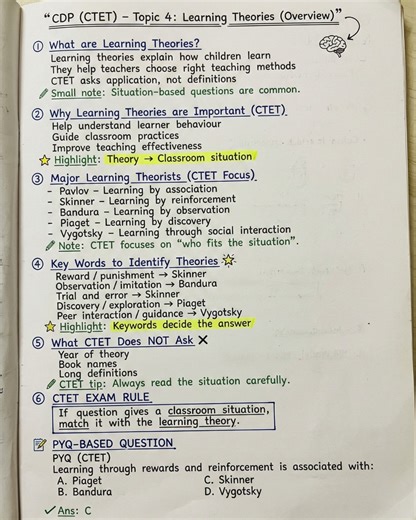 “CDP (CTET) – Topic 4: Learning Theories (Overview)”
① What are Learning Theories?
Learning theories explain how children learn
They help teachers choose right teaching methods
CTET asks application, not definitions
Small note: Situation-based questions are common.
② Why Learning Theories are Important (CTET)
Help understand learner behaviour
Guide classroom practices
Improve teaching effectiveness
Highlight: Theory → Classroom situation
③ Major Learning Theorists (CTET Focus)
- Pavlov – Learning by association
- Skinner – Learning by reinforcement
- Bandura – Learning by observation
- Piaget – Learning by discovery
- Vygotsky – Learning through social interaction
Note: CTET focuses on “who fits the situation”.
④ Key Words to Identify Theories
Reward / punishment → Skinner
Observation / imitation → Bandura
Trial and error → Skinner
Discovery / exploration → Piaget
Peer interaction / guidance → Vygotsky
Highlight: Keywords decide the answer
⑤ What CTET Does NOT Ask ✕
Year of theory
Book names
Long definitions
CTET tip: Always read the situation carefully.
⑥ CTET EXAM RULE
If question gives a classroom situation,
match it with the learning theory.
PYQ-BASED QUESTION
PYQ (CTET)
Learning through rewards and reinforcement is associated with:
A. Piaget C. Skinner
B. Bandura D. Vygotsky
✓ Ans: C